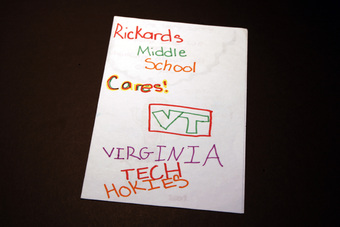 Rickards
Middle
School
Cares!
VT
VIRGINIA
TECH
HOKIES